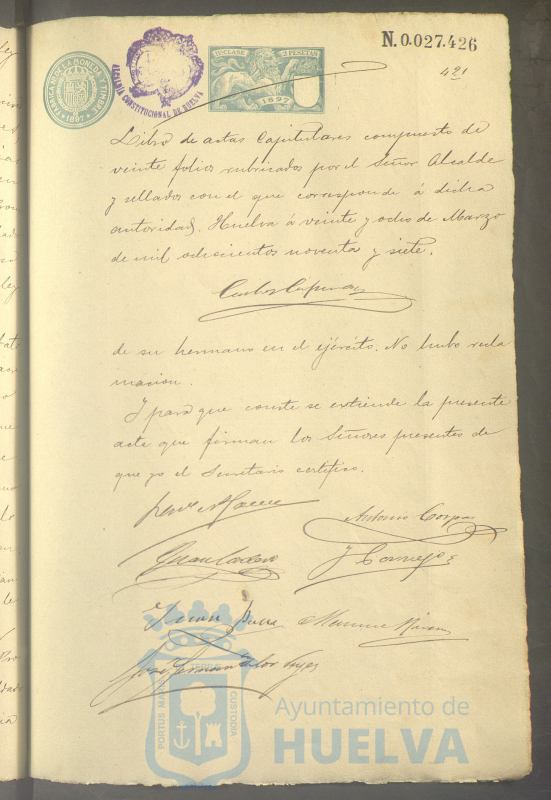 N.0.027.426
11ª CLASE
2 PESETAS
1897
FABRICA DE LA MONEDA Y TIMBRE
1897
ALCALDIA CONSTITUCIONAL DE HUELVA
421
Libro de actas Capitulares compuesto de
veinte folios rubricados por el Señor Alcalde
y sellados con el que corresponde á dicha
autoridad. Huelva á veinte y ocho de Marzo
de mil ochocientos noventa y siete.
de su hermano en el ejército. No hubo recla
macion.
Y para que conste se extiende la presente
acta que firman los Señores presentes de
que yo el Secretario certifico.
Antonio Corpas
J Cornejo
Juan
PORTUS MARIS
TERRAE
CUSTODIA
Ayuntamiento de
HUELVA